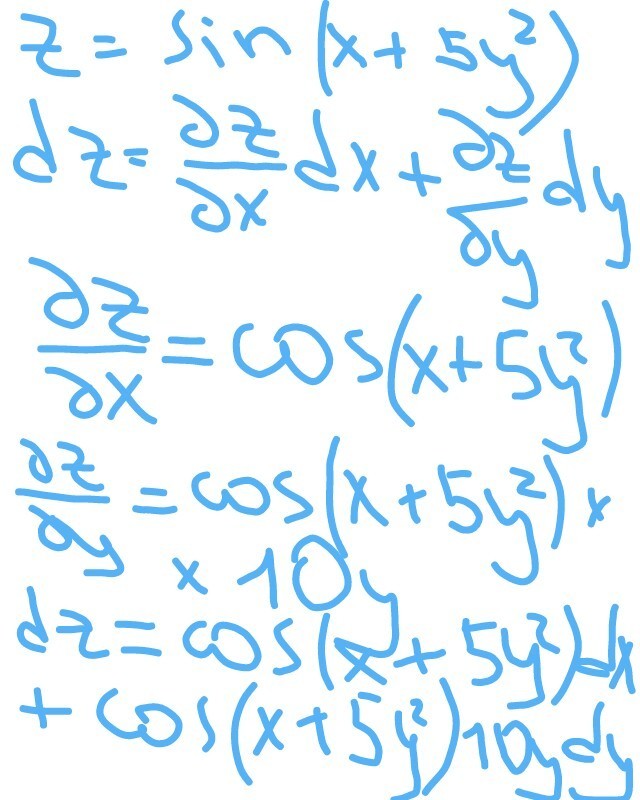 z = sin(x + 5y²)
dz = ∂z/∂x dx + ∂z/∂y dy
∂z/∂x = cos(x + 5y²)
∂z/∂y = cos(x + 5y²) ×
× 10y
dz = cos(x + 5y²)dx
+ cos(x + 5y²)10ydy